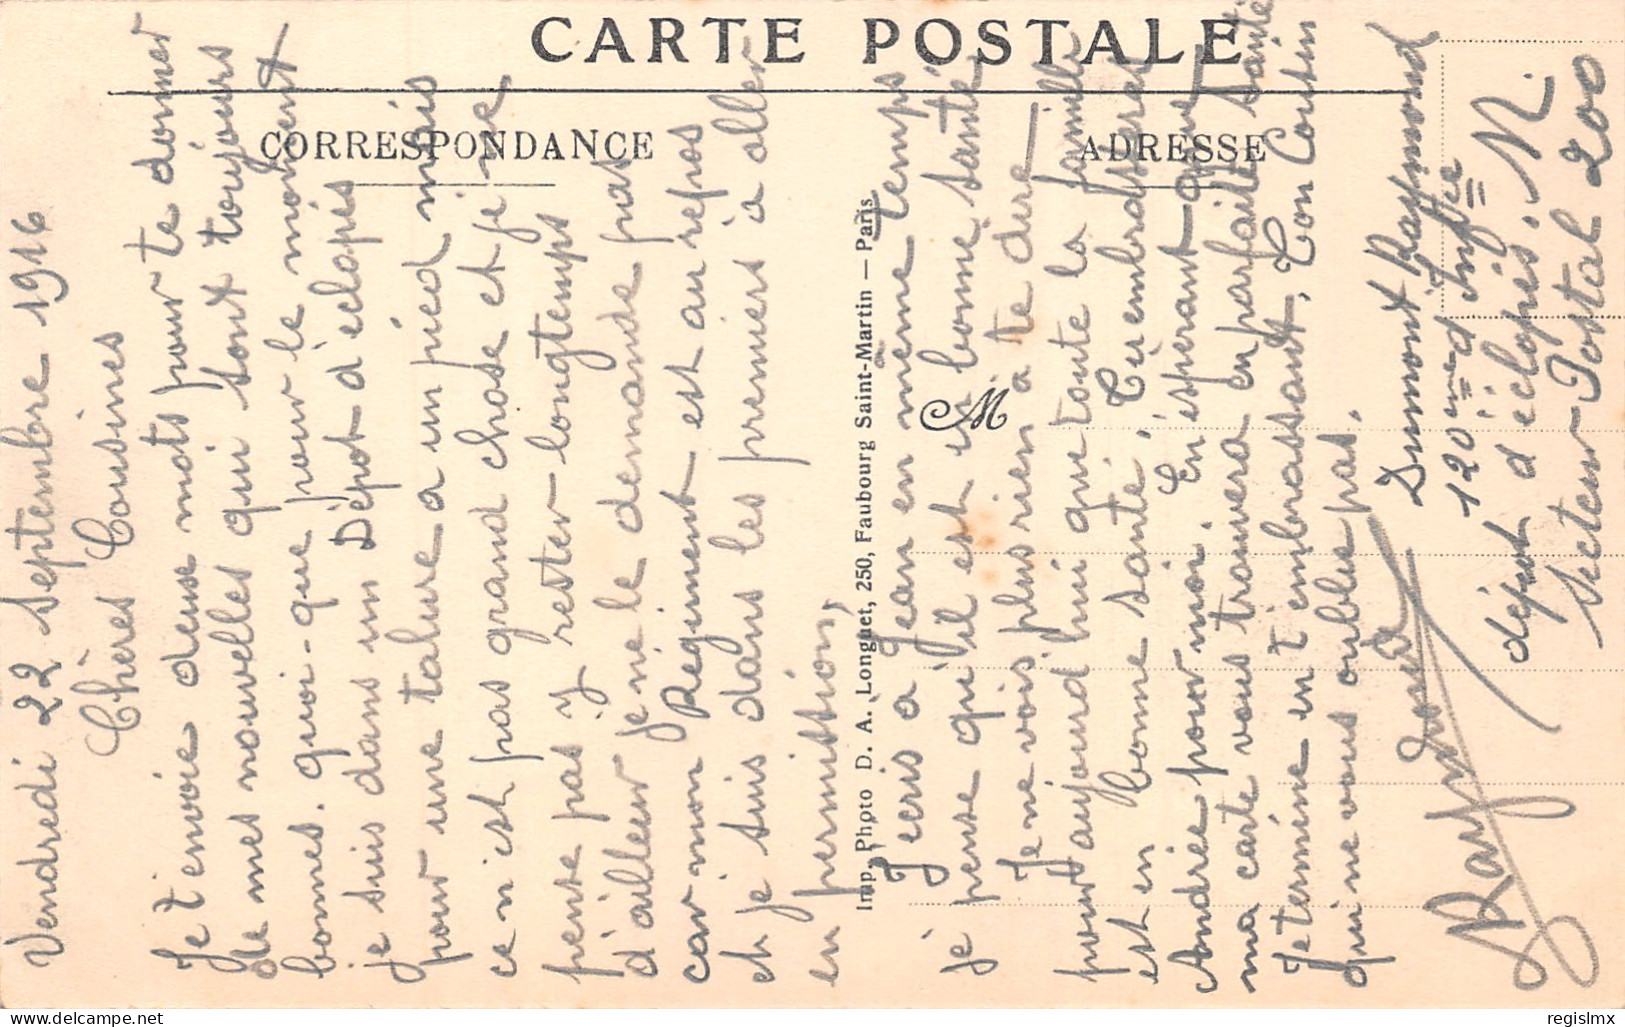 CARTE POSTALE
CORRESPONDANCE
ADRESSE
Imp. Photo D. A. Longuet, 250, Faubourg Saint-Martin — Paris
Vendredi 22 Septembre 1916
Chères Cousines
Je t'envoie deux mots pour te donner
de mes nouvelles qui sont toujours
bonnes. quoi-que pour le moment
je suis dans un Dépot d'éclopés
pour une talure a un pied mais
ce n'est pas grand chose et je ne
pense pas y rester longtemps
d'ailleur je ne le demande pas
car mon Regiment est au repos
et je suis dans les premiers a aller
en permission,
J'ecris a Jean en même temps
je pense qu'il est en bonne santé
Je ne vois plus rien a te dire
pour aujourd hui que toute la famille
est en bonne santé. Tu embrasseras
Andrée pour moi. En espérant que
ma carte vous trouvera en parfaite santé
Je termine en t'embrassant, Ton Cousin
qui ne vous oublie pas.
Raymond
Dumont Raymond
120me d'Inf=ie
dépot d'éclopés. M.
Secteur-Postal 200
M
delcampe.net
regislmx